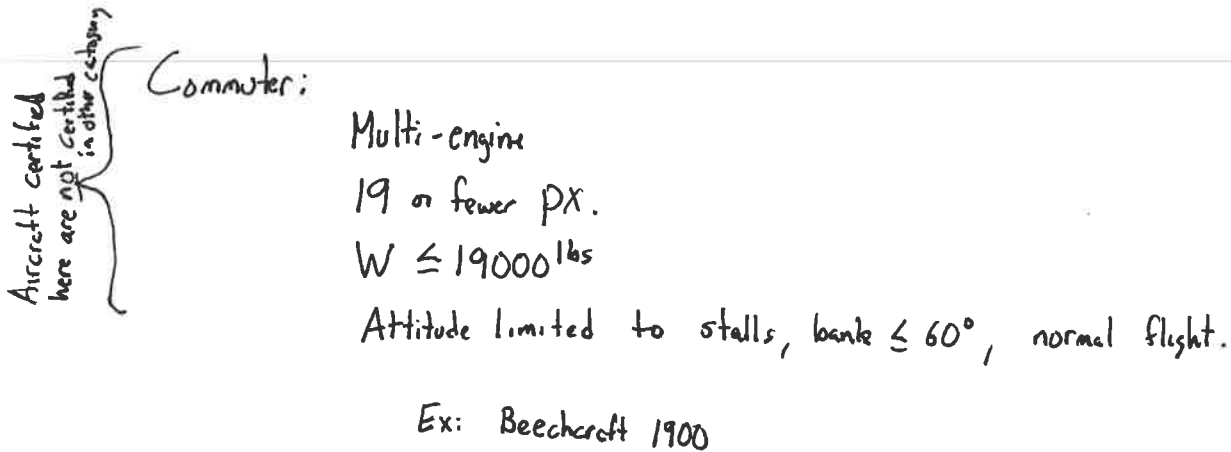 Aircraft certified
here are not certified
in other category
Commuter:
Multi-engine
19 or fewer px.
W ≤ 19000 lbs
Attitude limited to stalls, bank ≤ 60°, normal flight.
Ex: Beechcraft 1900